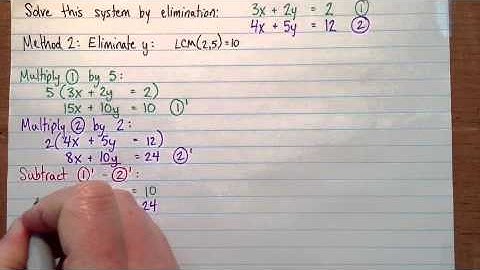 Solve this system by elimination: 3x + 2y = 2 ①
4x + 5y = 12 ②
Method 2: Eliminate y: LCM(2,5)=10
Multiply ① by 5:
5(3x + 2y = 2)
15x + 10y = 10 ①'
Multiply ② by 2:
2(4x + 5y = 12)
8x + 10y = 24 ②'
Subtract ①' - ②':
= 10
24